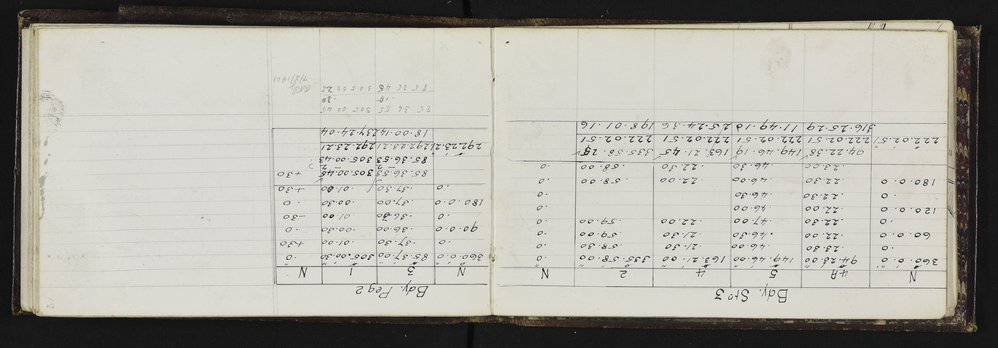 Bdy. Stn 3
N 4A 5 4 2 N
360.0.0 94.23.00 149.46.00 163.21.00 335.58.00 .0
.0 .23.30 .46.00 .21.30 .58.30 .0
60.0.0 .22.00 .46.30 .21.30 .59.00 .0
.0 .22.30 .47.00 .22.00 .59.00 .0
120.0.0 .22.00 .46.00
.0 .22.30 .46.30
180.0.0 .22.30 .46.00 .22.00 .58.00 .0
.0 .23.30 .46.30 .22.30 .58.00 .0
94.22.38 149.46.19 163.21.45 335.58.29
222.02.51 222.02.51 222.02.51 222.02.51 222.02.51
316.25.29 11.49.10 25.24.36 198.01.16
Bdy. Peg 2
N 3 1 N
360.0.0 85.37.00 305.00.30 .0
.0 .37.30 .01.00 +30
90.0.0 .36.00 .00.30 .0
.0 .36.30 .01.00 -30
180.0.0 .37.00 .00.30 .0
.0 .37.30 .01.00 +30
85.36.55 305.00.45 +30
85.36.53 305.00.43
292.23.21 292.23.21 292.23.21
18.00.14 237.24.04
85 36 55 305 00 45
10 .30
85 36 45 305 00 25
7/3/1901